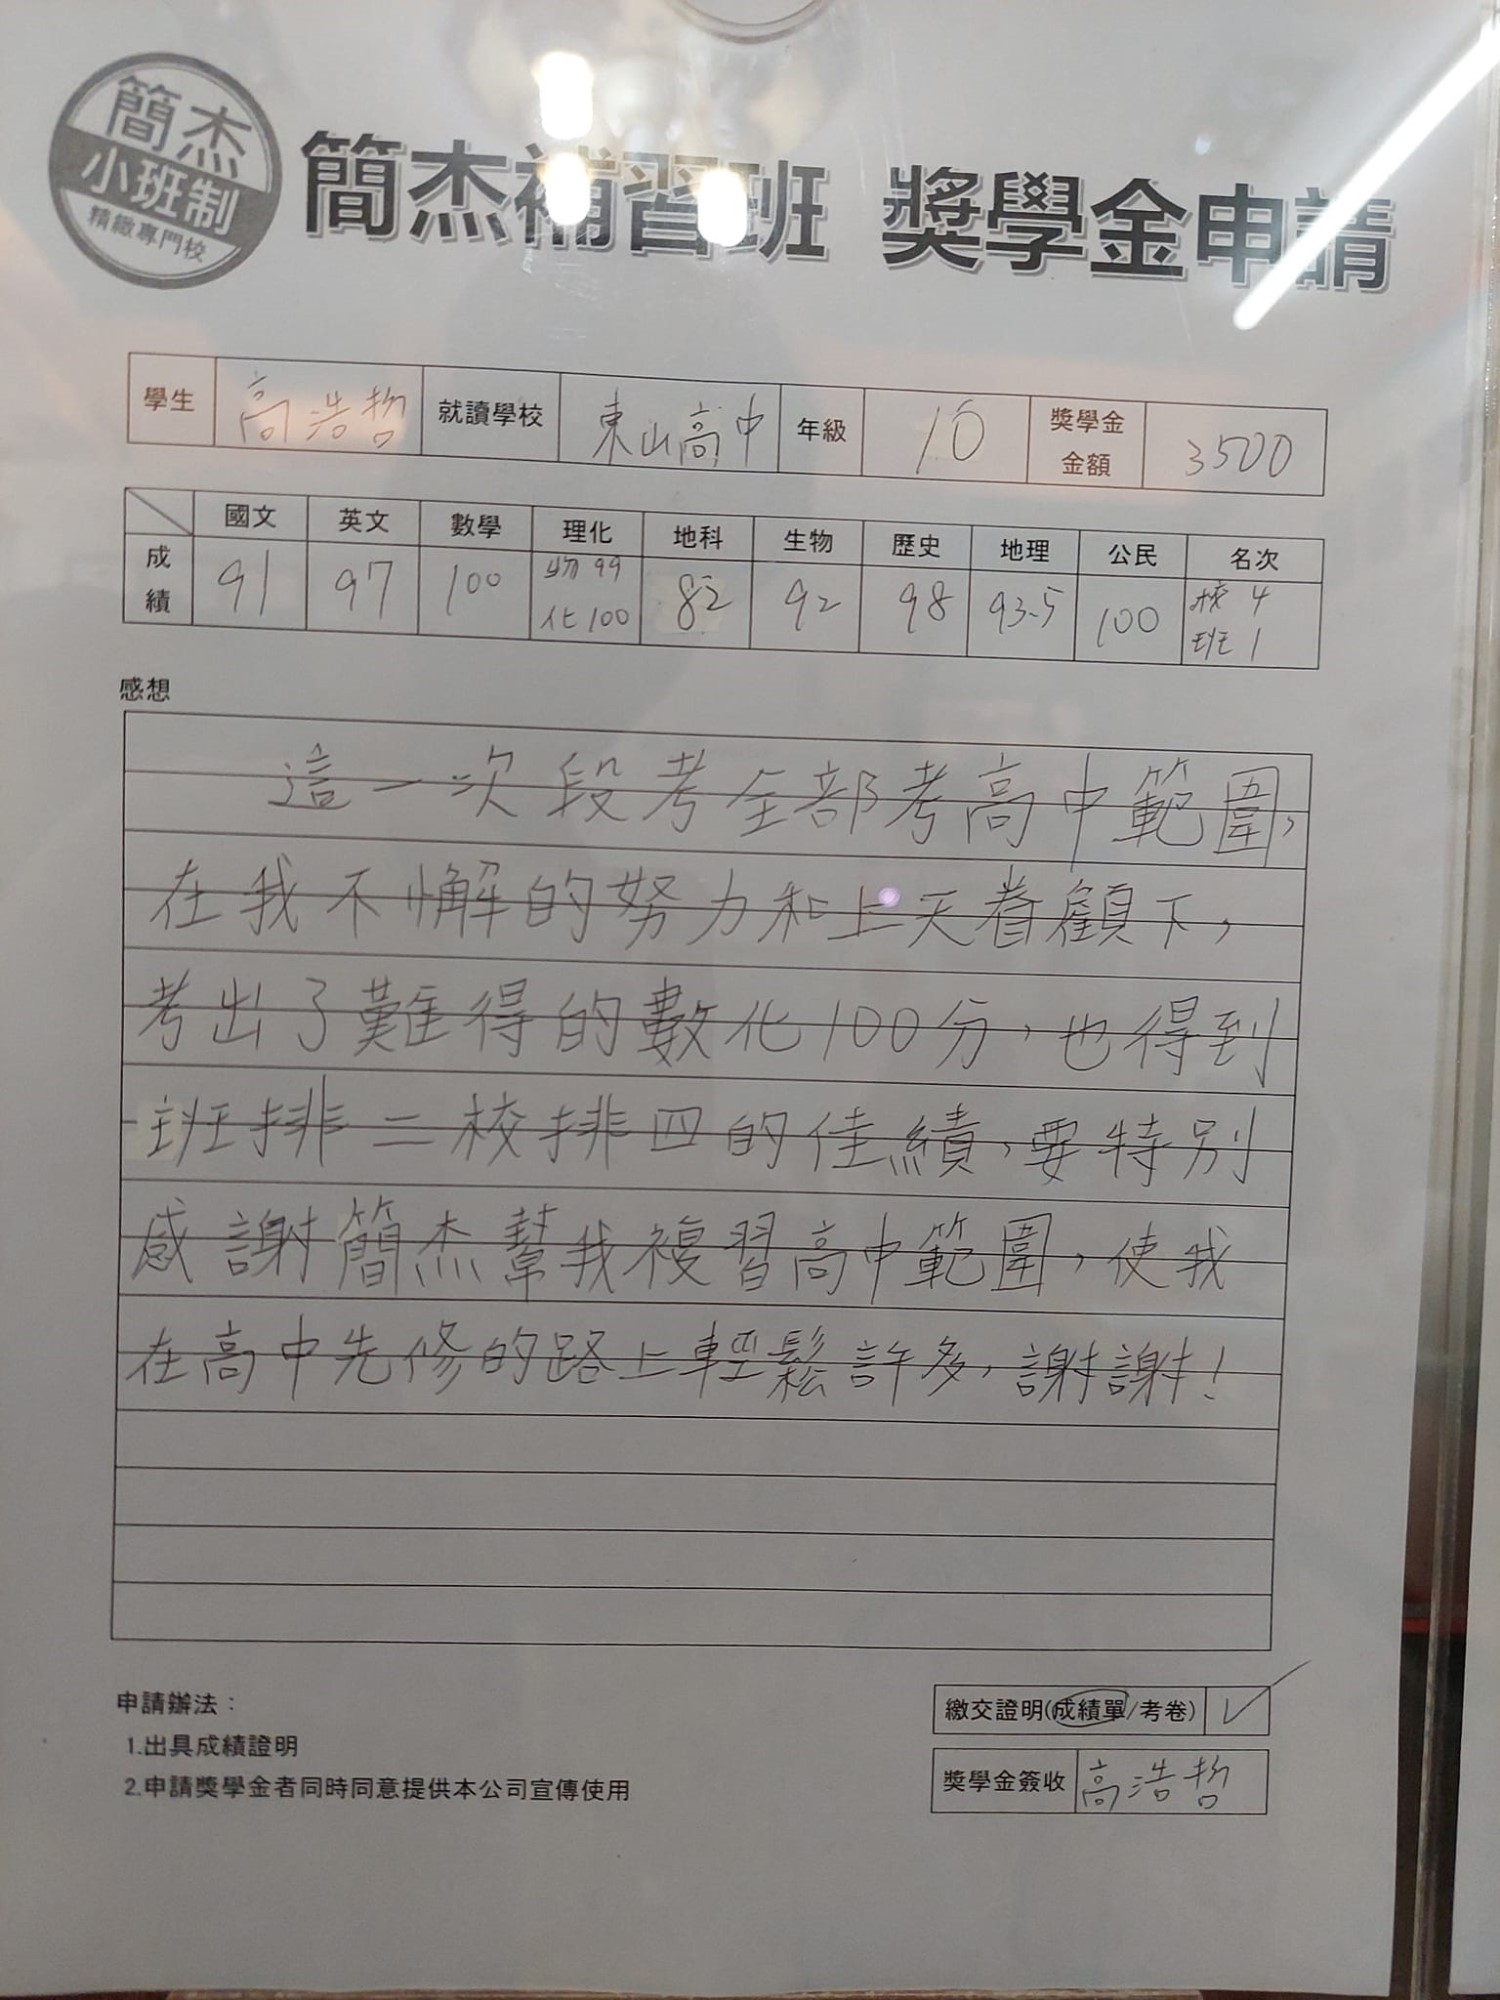 簡杰
小班制
精緻專門校
簡杰補習班 獎學金申請
學生 高浩哲 就讀學校 東山高中 年級 10 獎學金金額 3500
國文 英文 數學 理化 地科 生物 歷史 地理 公民 名次
成績 91 97 100 物99 化100 82 92 98 93.5 100 校4 班1
感想
這一次段考全部考高中範圍,
在我不懈的努力和上天眷顧下,
考出了難得的數化100分,也得到
班排二校排四的佳績,要特別
感謝簡杰幫我複習高中範圍,使我
在高中先修的路上輕鬆許多,謝謝!
申請辦法:
1.出具成績證明
2.申請獎學金者同時同意提供本公司宣傳使用
繳交證明(成績單/考卷) ✓
獎學金簽收 高浩哲